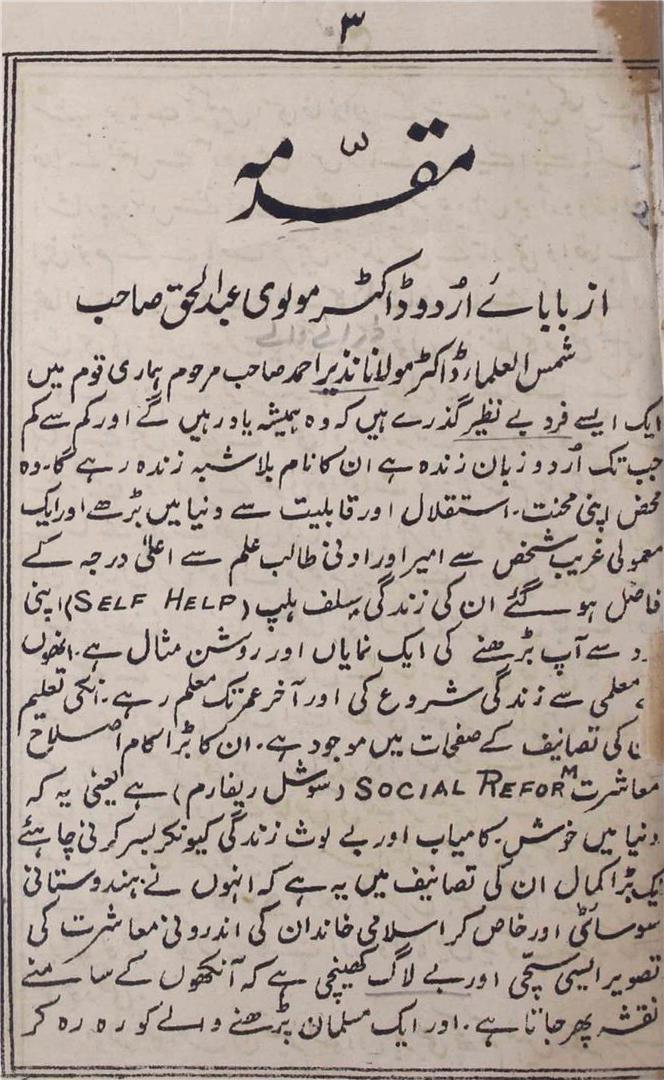 ۳
مقدّمہ
از بابائے اُردو ڈاکٹر مولوی عبدالحق صاحب
شمس العلماء ڈاکٹر مولانا نذیر احمد صاحب مرحوم ہماری قوم میں
ایک ایسے فرد بے نظیر گذرے ہیں کہ وہ ہمیشہ یاد رہیں گے اور کم سے کم
جب تک اُردو زبان زندہ ہے ان کا نام بلا شبہ زندہ رہے گا۔ وہ
محض اپنی محنت۔ استقلال اور قابلیت سے دنیا میں بڑھے اور ایک
معمولی غریب شخص سے امیر اور ادنیٰ طالب علم سے اعلیٰ درجہ کے
فاضل ہو گئے ان کی زندگی سلف ہلپ (SELF HELP) اپنی
د سے آپ بڑھنے کی ایک نمایاں اور روشن مثال ہے۔ انھوں
معلمی سے زندگی شروع کی اور آخر عمر تک معلم رہے۔ انکی تعلیم
کی تصانیف کے صفحات میں موجود ہے۔ ان کا بڑا کام اصلاح
معاشرت SOCIAL REFORM (سوشل ریفارم) ہے یعنی یہ کہ
دنیا میں خوش۔ کامیاب اور بے لوث زندگی کیونکر بسر کرنی چاہئے
یک بڑا کمال ان کی تصانیف میں یہ ہے کہ انہوں نے ہندوستانی
سوسائٹی اور خاص کر اسلامی خاندان کی اندرونی معاشرت کی
تصویر ایسی سچّی اور بے لاگ کھینچی ہے کہ آنکھوں کے سامنے
نقشہ پھر جاتا ہے۔ اور ایک مسلمان پڑھنے والے کو رہ رہ کر